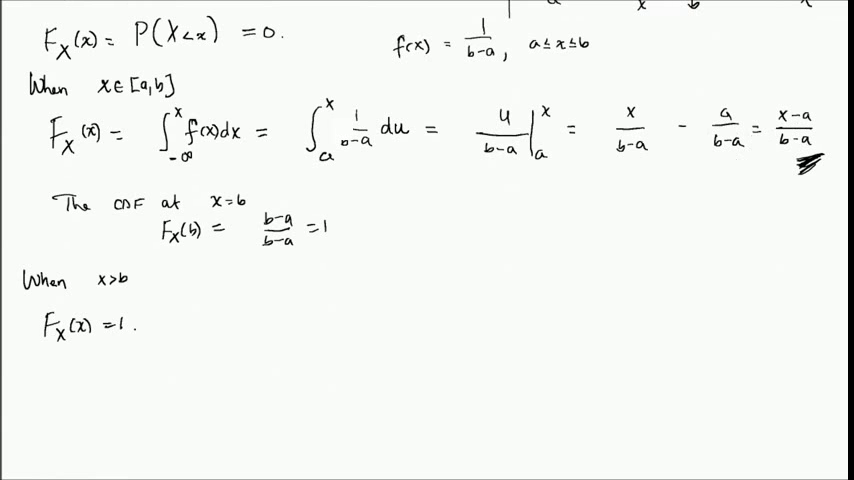 a x b x
F_X(x) = P(X<x) = 0.
f(x) = 1/(b-a), a≤x≤b
When x∈[a,b]
F_X(x) = ∫_{-∞}^{x} f(x)dx = ∫_a^x 1/(b-a) du = u/(b-a) |_a^x = x/(b-a) - a/(b-a) = (x-a)/(b-a)
The CDF at x=b
F_X(b) = (b-a)/(b-a) = 1
When x>b
F_X(x) = 1.